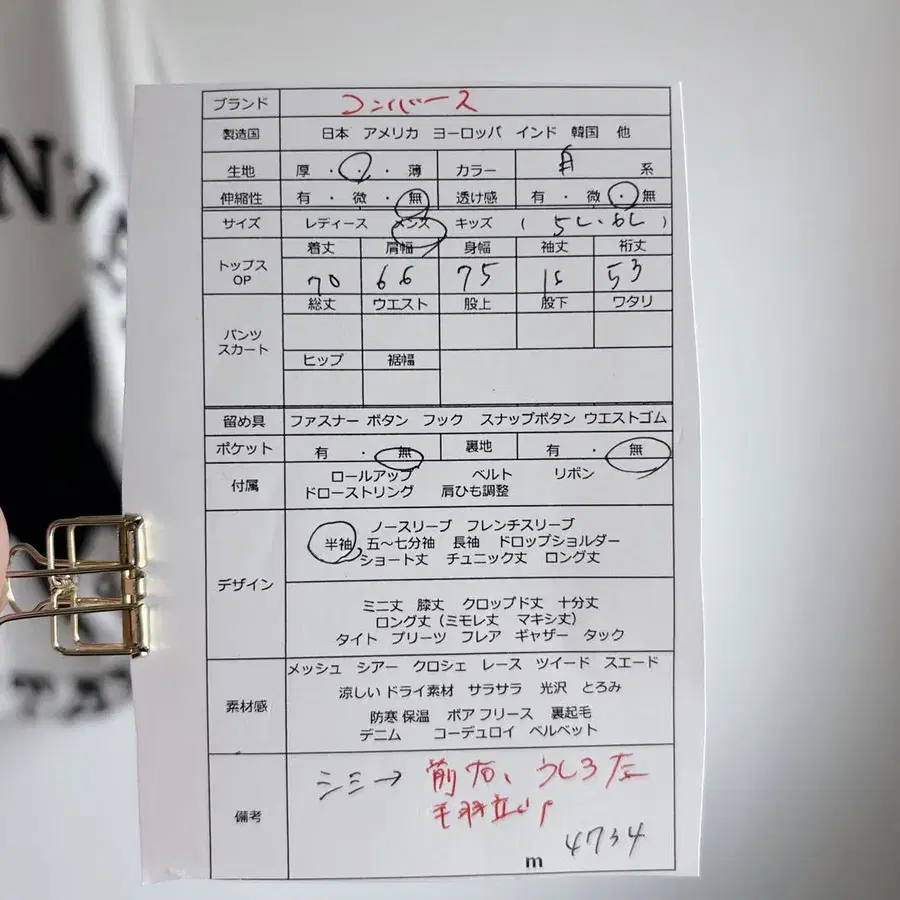 ブランド コンバース
製造国 日本 アメリカ ヨーロッパ インド 韓国 他
生地 厚 ・ ・ ・ 薄 カラー 系
伸縮性 有 ・ 微 ・ 無 透け感 有 ・ 微 ・ 無
サイズ レディース メンズ キッズ ( 5L・6L )
トップス OP
着丈 肩幅 身幅 袖丈 裄丈
70 66 75 53
パンツ スカート
総丈 ウエスト 股上 股下 ワタリ
ヒップ 裾幅
留め具 ファスナー ボタン フック スナップボタン ウエストゴム
ポケット 有 ・ 無 裏地 有 ・ 無
付属
ロールアップ ベルト リボン
ドローストリング 肩ひも調整
デザイン
ノースリーブ フレンチスリーブ
半袖 五〜七分袖 長袖 ドロップショルダー
ショート丈 チュニック丈 ロング丈
ミニ丈 膝丈 クロップド丈 十分丈
ロング丈(ミモレ丈 マキシ丈)
タイト プリーツ フレア ギャザー タック
素材感
メッシュ シアー クロシェ レース ツイード スエード
涼しい ドライ素材 サラサラ 光沢 とろみ
防寒 保温 ボア フリース 裏起毛
デニム コーデュロイ ベルベット
備考
シミ→ 前右、うしろ左
毛羽立ち
m 4734